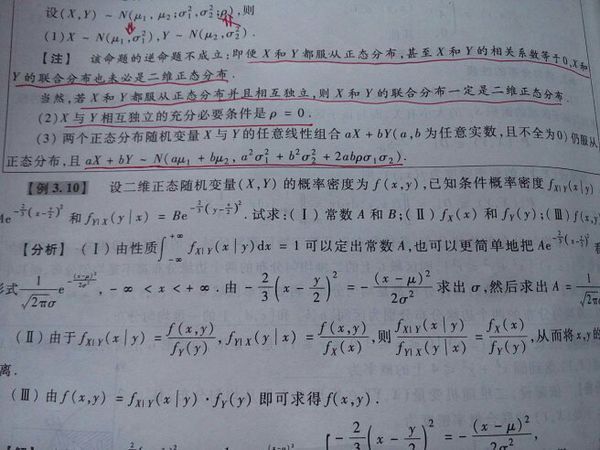 设(X,Y) ~ N(μ₁, μ₂; σ₁², σ₂²; ρ),则
(1)X ~ N(μ₁,σ₁²),Y ~ N(μ₂,σ₂²).
【注】 该命题的逆命题不成立;即使 X 和 Y 都服从正态分布,甚至 X 和 Y 的相关系数等于0,X和
Y 的联合分布也未必是二维正态分布.
当然,若 X 和 Y 都服从正态分布并且相互独立,则 X 和 Y 的联合分布一定是二维正态分布.
(2)X 与 Y 相互独立的充分必要条件是 ρ = 0.
(3) 两个正态分布随机变量 X 与 Y 的任意线性组合 aX + bY(a,b 为任意实数,且不全为0) 仍服从
正态分布,且 aX + bY ~ N(aμ₁ + bμ₂, a²σ₁² + b²σ₂² + 2abρσ₁σ₂).
【例3.10】 设二维正态随机变量(X,Y) 的概率密度为 f(x,y),已知条件概率密度 f_{X|Y}(x|y)
Ae^{-\frac{2}{3}(x-\frac{y}{2})²} 和 f_{Y|X}(y|x) = Be^{-\frac{2}{3}(y-\frac{x}{2})²}. 试求:(Ⅰ) 常数 A 和 B;(Ⅱ) f_X(x) 和 f_Y(y);(Ⅲ) f(x,y)
【分析】 (Ⅰ) 由性质∫_{-∞}^{+∞} f_{X|Y}(x|y)dx = 1 可以定出常数 A,也可以更简单地把 Ae^{-\frac{2}{3}(x-\frac{y}{2})²}
形式 \frac{1}{\sqrt{2π}σ}e^{-\frac{(x-μ)²}{2σ²}}, -∞ < x < +∞. 由 -\frac{2}{3}(x-\frac{y}{2})² = -\frac{(x-μ)²}{2σ²} 求出 σ,然后求出 A = \frac{1}{\sqrt{2π}σ}
(Ⅱ) 由于 f_{X|Y}(x|y) = \frac{f(x,y)}{f_Y(y)}, f_{Y|X}(y|x) = \frac{f(x,y)}{f_X(x)}, 则 \frac{f_{X|Y}(x|y)}{f_{Y|X}(y|x)} = \frac{f_X(x)}{f_Y(y)}, 从而将 x,y的
离.
(Ⅲ) 由 f(x,y) = f_{X|Y}(x|y)·f_Y(y) 即可求得 f(x,y).
[-\frac{2}{3}(x-\frac{y}{2})² = -\frac{(x-μ)²}{2σ²},